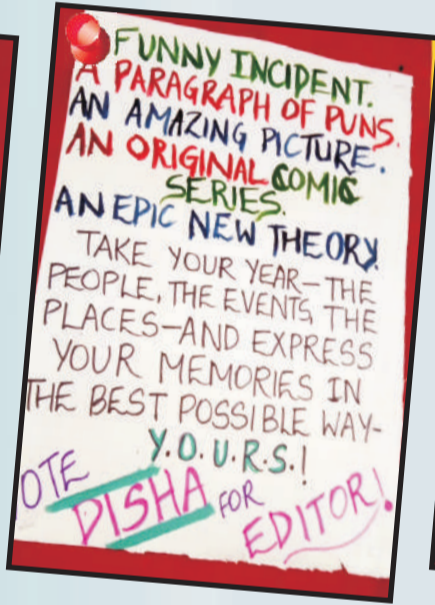 FUNNY INCIDENT.
A PARAGRAPH OF PUNS.
AN AMAZING PICTURE.
AN ORIGINAL COMIC
SERIES.
AN EPIC NEW THEORY.
TAKE YOUR YEAR—THE
PEOPLE, THE EVENTS, THE
PLACES—AND EXPRESS
YOUR MEMORIES IN
THE BEST POSSIBLE WAY-
Y.O.U.R.S.!
OTE
DISHA FOR
EDITOR!